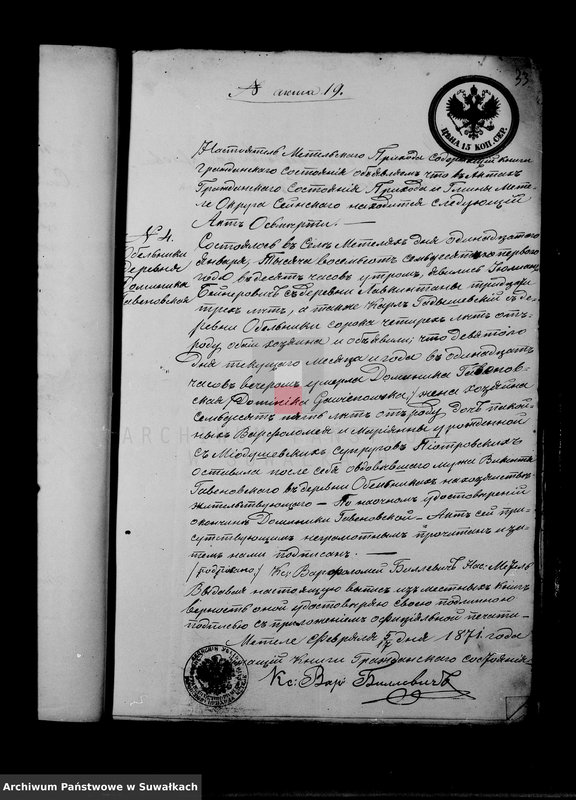 33
№ акта 19.
ЦѢНА 15 КОП. СЕР.
Настоятель Метельского Прихода содержащій книги
Гражданского состоянія объявляетъ что въ Актахъ
Гражданского Состоянія Прихода и Гмины Мете-
ле Округа Сейнского находится слѣдующій
Актъ О смерти. —
№ 4.
Обельники
деревня
Доминика
Гавеновская
Состоялось въ Селѣ Метеляхъ дня одинадцатого
Января, Тысяча восемьсотъ семьдесятъ первого
года въ десять часовъ утромъ, явились
съ деревни тридцати
трехъ лѣтъ, а также Карлъ съ де-
ревни Обельники сорока четырехъ лѣтъ отъ
роду оба хозяина и объявили, что девятого
дня текущаго месяца и года въ одинадцать
часовъ вечеромъ умерла Доминика Гавенов-
ская жена хозяина
семьдесятъ лѣтъ отъ роду дочь покой-
ныхъ Варфоломея и Маріянны урожденной
съ супруговъ Піотровскихъ
оставила после себя овдовѣвшаго мужа Викентія
Гавеновского въ деревни Обельникахъ на хозяйствѣ
жительствующаго — По наочномъ удостовереніи
окончины Доминики Гавеновской — Актъ сей при-
сутствующимъ неграмотнымъ прочитанъ и за-
темъ нами подписанъ. —
(подписано) Кс: Варфоломей Биллевичъ Нас: Метель
Выдавая настоящую выпись изъ местныхъ Книгъ
верность оной удостоверяю своею подписью
съ приложеніемъ официяльной печати —
Метеле Февраля дня 1871 года
Книги Гражданского состоянія
Кс: Вар: Биллевичъ
ARCHIWUM PAŃSTWOWE
Archiwum Państwowe w Suwałkach